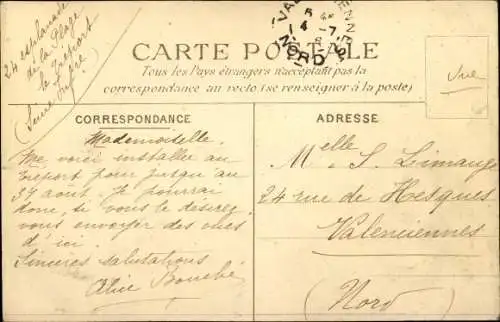 24 esplanade
de la Plage
le Treport
(Seine Infre)
CARTE POSTALE
Tous les Pays étrangers n'acceptant pas la
correspondance au recto (se renseigner à la poste)
VALENCIENNES
NORD
Vue
CORRESPONDANCE
Mademoiselle.
Me voici installée au
Treport pour jusqu'au
31 août. Je pourrai
donc, si vous le désirez,
vous envoyer des vues
d'ici.
Sincères salutations
Alice Bouché
ADRESSE
Melle S. Limauge
24 rue de Hesques
Valenciennes
(Nord)